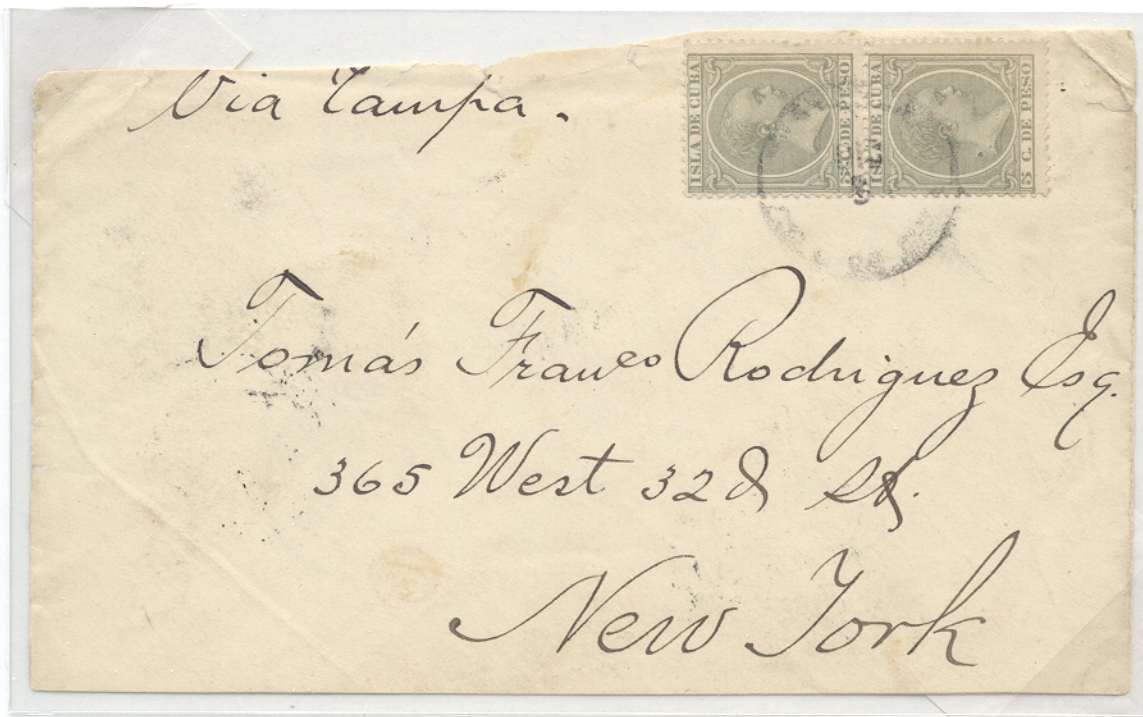 Via Tampa.
ISLA DE CUBA
5 C. DE PESO
ISLA DE CUBA
5 C. DE PESO
Tomás Franco Rodriguez Esq.
365 West 32d St.
New York